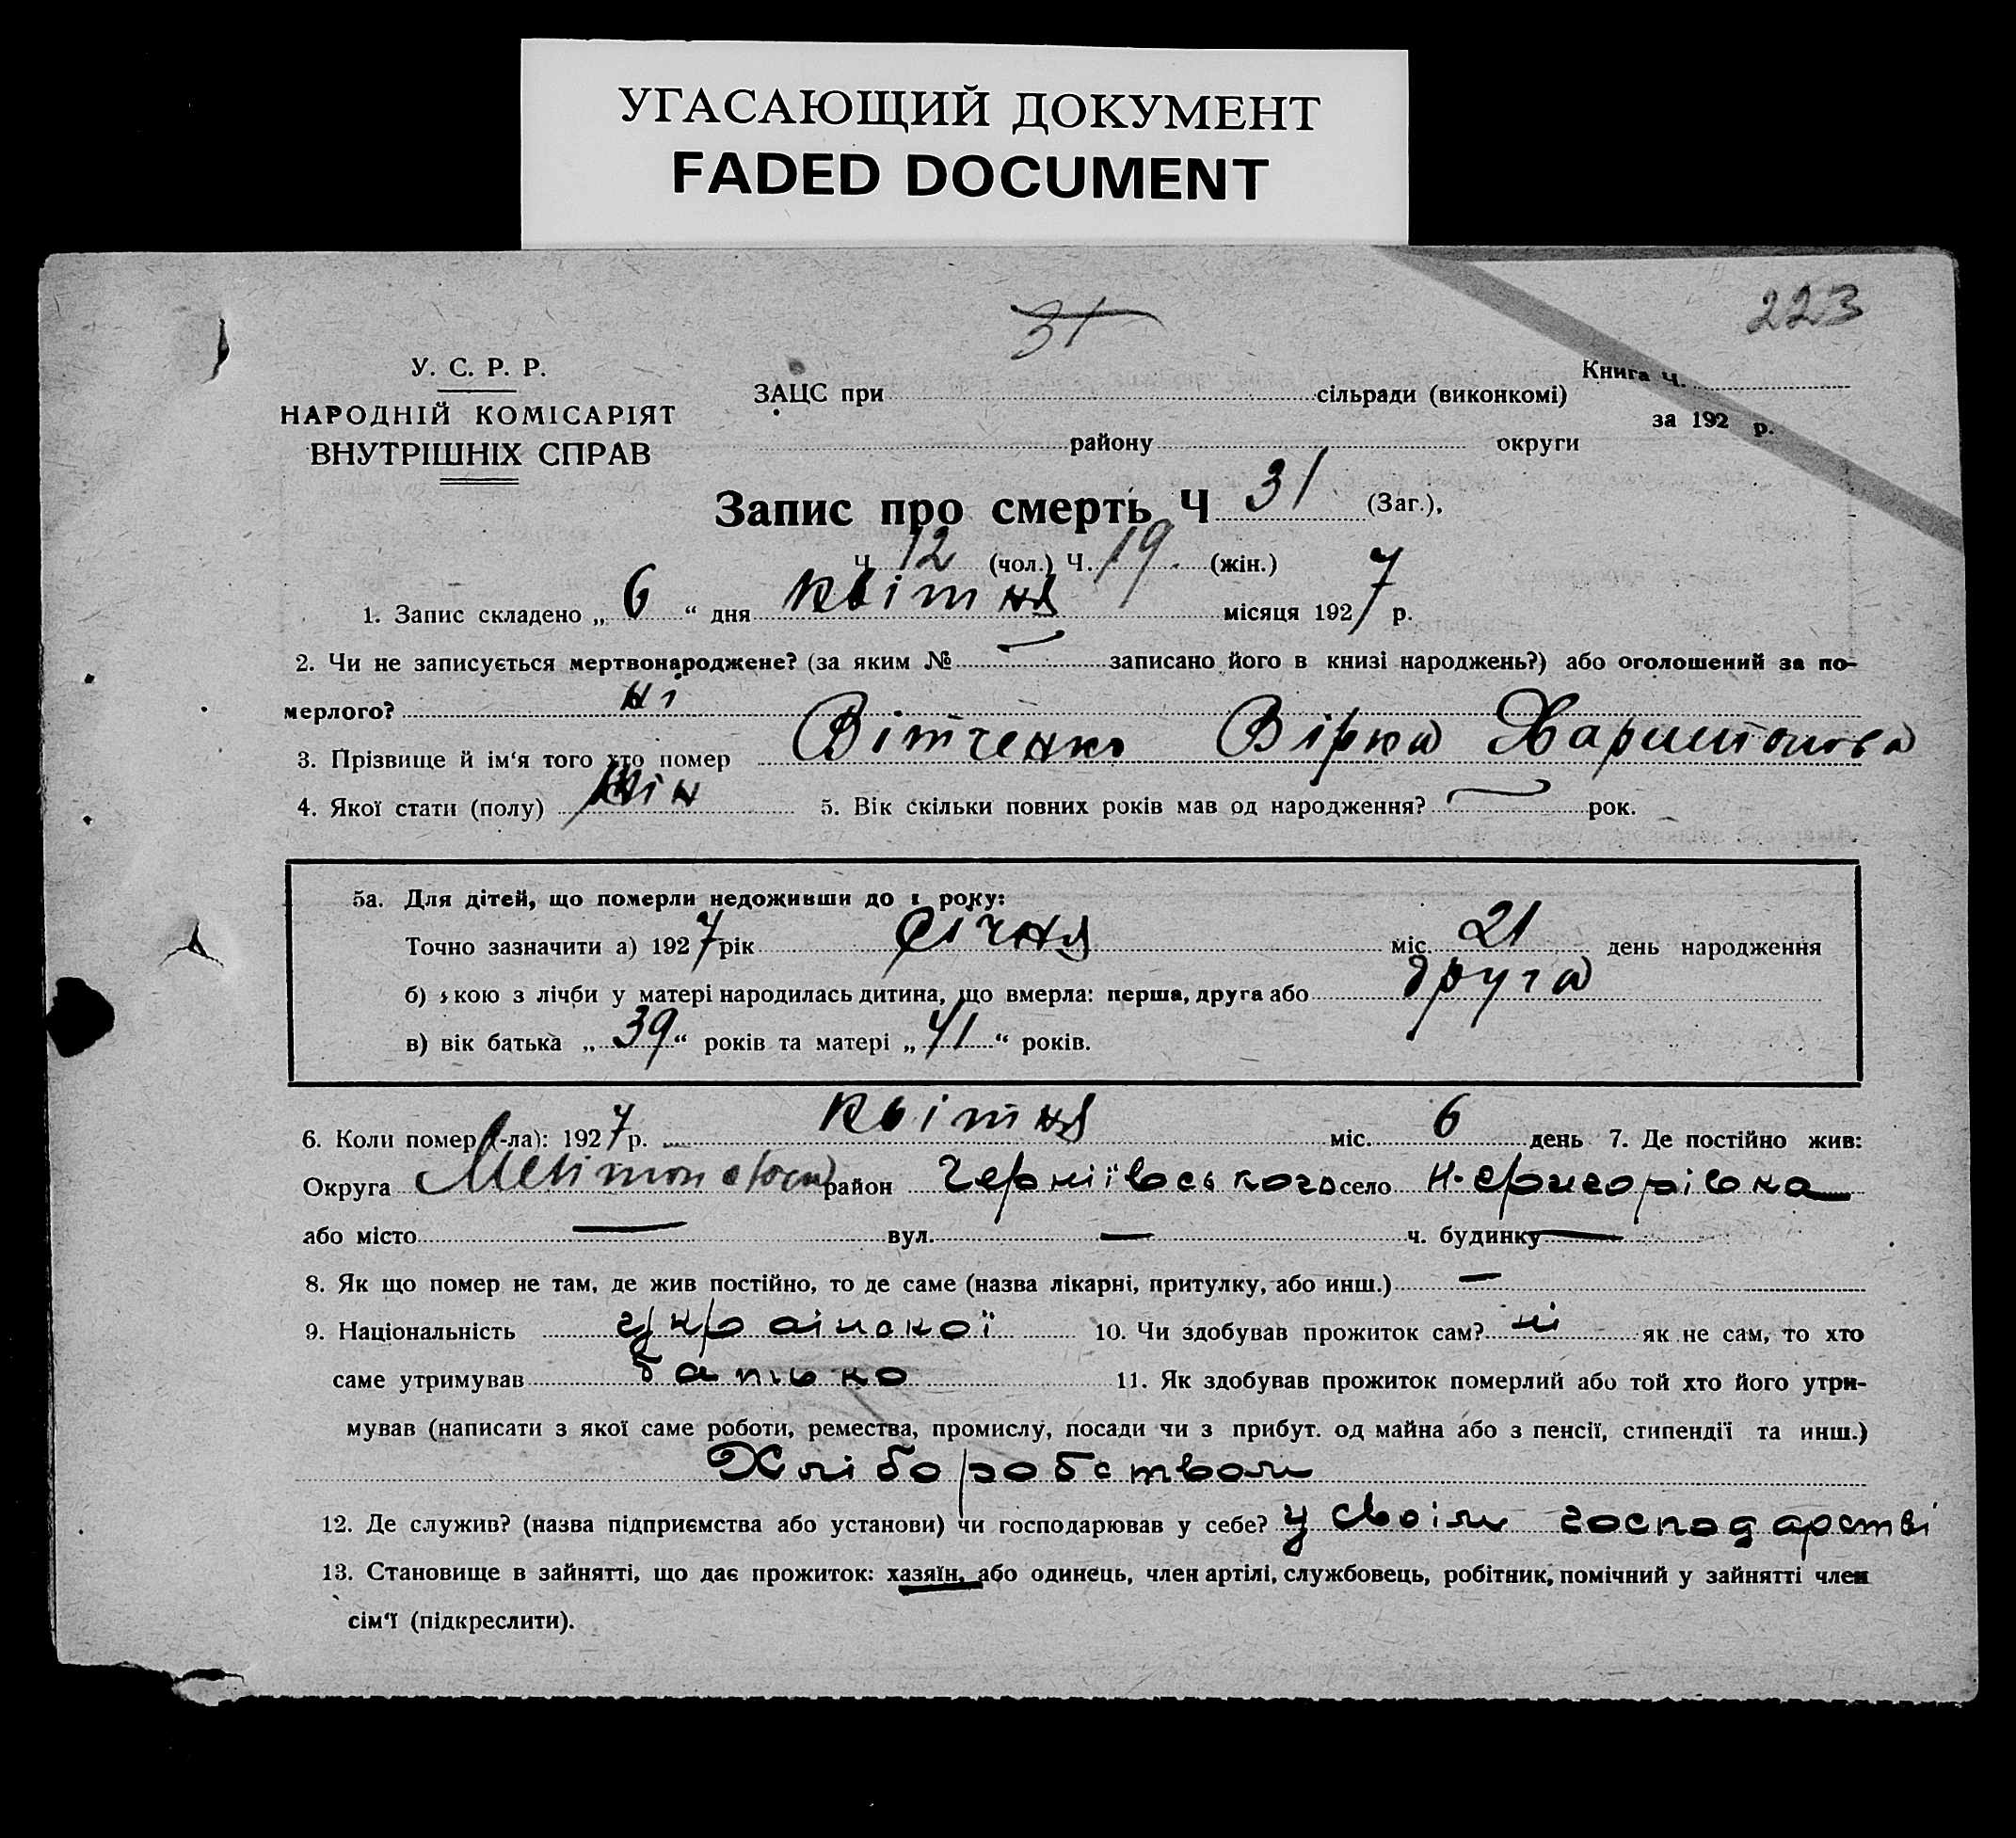 УГАСАЮЩИЙ ДОКУМЕНТ
FADED DOCUMENT
223
31
У. С. Р. Р.
НАРОДНІЙ КОМІСАРІЯТ
ВНУТРІШНІХ СПРАВ
ЗАЦС при сільради (виконкомі)
району округи
Книга Ч.
за 192 р.
Запис про смерть Ч 31 (Заг.),
Ч 12 (чол.) Ч. 19 (жін.)
1. Запис складено „ 6 “ дня квітня місяця 1927 р.
2. Чи не записується мертвонароджене? (за яким № — записано його в книзі народжень?) або оголошений за по-
мерлого? ні
3. Прізвище й ім'я того хто помер Вітченко Вірка Харитонова
4. Якої стати (полу) жін 5. Вік скільки повних років мав од народження? — рок.
5а. Для дітей, що померли недоживши до 1 року:
Точно зазначити а) 1927 рік січня міс. 21 день народження
б) якою з лічби у матері народилась дитина, що вмерла: перша, друга або друга
в) вік батька „ 39 “ років та матері „ 41 “ років.
6. Коли помер (-ла): 1927 р. квітня міс. 6 день 7. Де постійно жив:
Округа район Чернїівського село Н-Григорівка
або місто — вул. — ч. будинку —
8. Як що помер не там, де жив постійно, то де саме (назва лікарні, притулку, або инш.) —
9. Національність украінскої 10. Чи здобував прожиток сам? ні як не сам, то хто
саме утримував батько 11. Як здобував прожиток померлий або той хто його утри-
мував (написати з якої саме роботи, ремества, промислу, посади чи з прибут. од майна або з пенсії, стипендії та инш.)
Хліборобством
12. Де служив? (назва підприємства або установи) чи господарював у себе? у своім господарстві
13. Становище в зайнятті, що дає прожиток: хазяїн, або одинець, член артілі, службовець, робітник, помічний у зайнятті член
сім'ї (підкреслити).